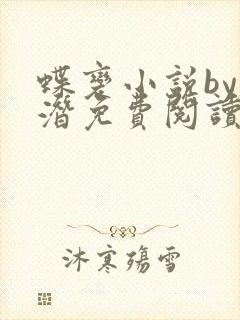 蝶变小说by
潜免费阅读
沐寒殇雪